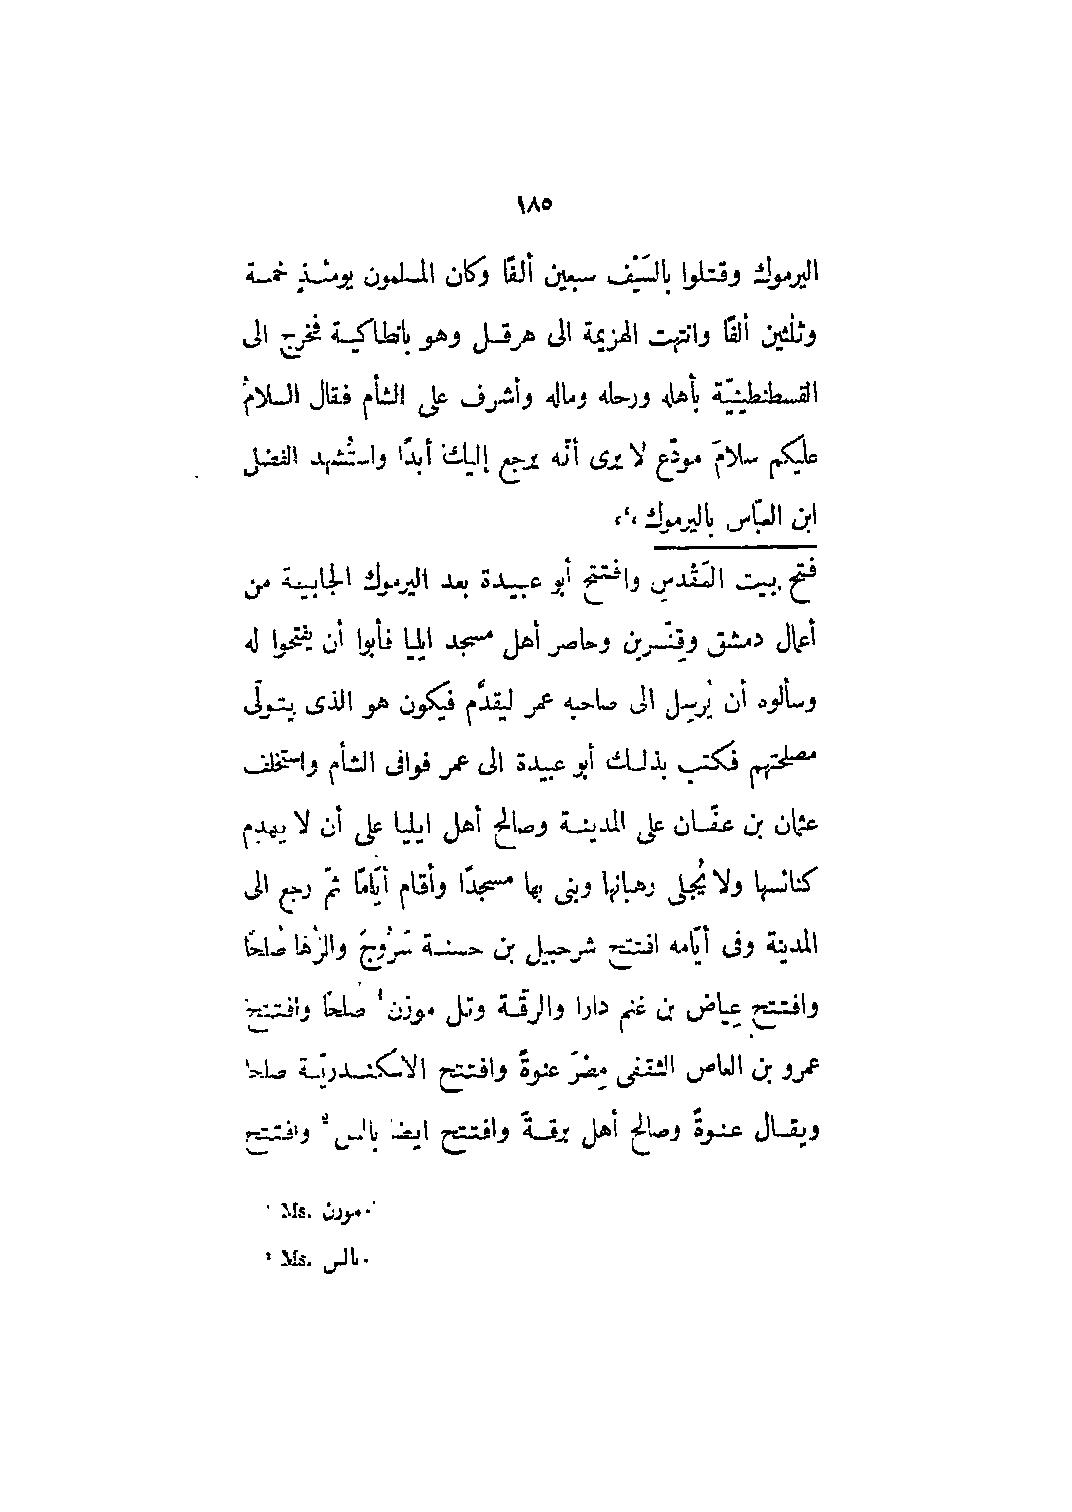 ١٨٥
اليرموك وقتلوا بالسَيْف سبعين ألفًا وكان المسلمون يومئذٍ خمسة
وثلثين ألفًا وانتهت الهزيمة الى هرقل وهو بانطاكية فخرج الى
القسطنطينيّة بأهله ورحله وماله وأشرف على الشأم فقال السلامُ
عليكم سلامَ مودّع لا يرى أنّه يرجع إليك أبدًا واستُشهد الفضل
ابن العبّاس باليرموك ،'،
فتح بيت المَقْدس وافتتح أبو عبيدة بعد اليرموك الجابية من
أعمال دمشق وقِنّسرين وحاصر أهل مسجد ايليا فأبوا أن يفتحوا له
وسألوه أن يُرسِل الى صاحبه عمر ليقدَّم فيكون هو الذى يتولّى
مصلحتهم فكتب بذلك أبو عبيدة الى عمر فوافى الشأم واستخلف
عثمان بن عفّان على المدينة وصالح أهل ايليا على أن لا يهدم
كنائسها ولا يُجلى رهبانها وبنى بها مسجدًا وأقام أيّامًا ثمّ رجع الى
المدينة وفى أيّامه افتتح شرحبيل بن حسنة سَرُوجَ والرُها صُلحًا
وافتتح عِياض بن غنم دارا والرقّة وتل موزن¹ صُلحًا وافتتح
عمرو بن العاص الثقفى مِصْرَ عنوةً وافتتح الاسكندريّة صلحا
ويقال عنوةً وصالح أهل برقةَ وافتتح ايضا بالس² وافتتح
¹ Ms. مورن
² Ms. بالس